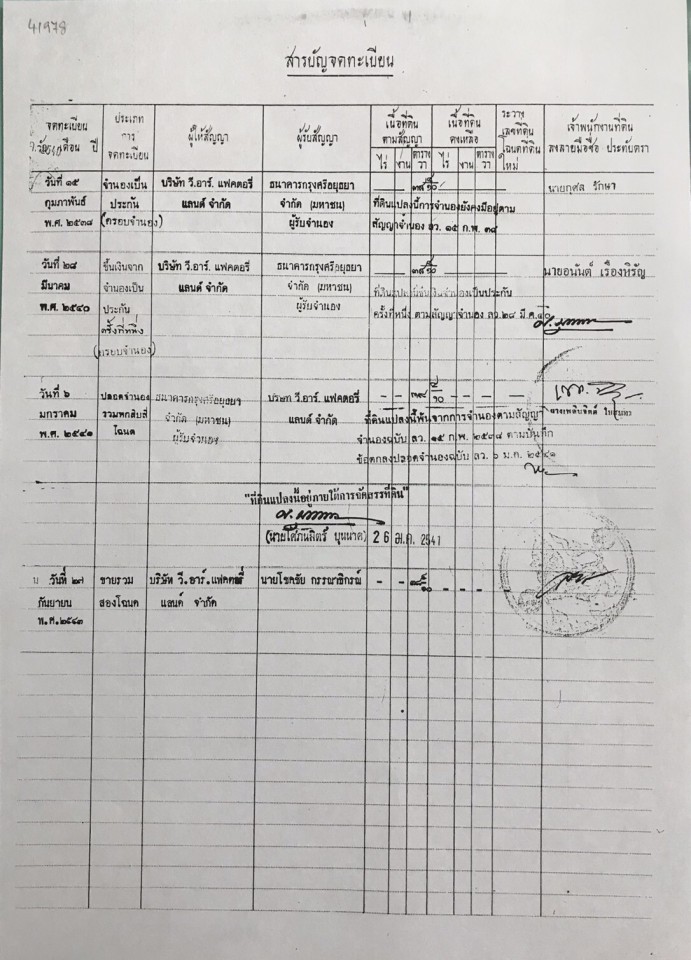 41978
สารบัญจดทะเบียน
จดทะเบียน
วัน เดือน ปี
ประเภท
การ
จดทะเบียน
ผู้ให้สัญญา
ผู้รับสัญญา
เนื้อที่ดิน
ตามสัญญา
ไร่ งาน ตารางวา
เนื้อที่ดิน
คงเหลือ
ไร่ งาน ตารางวา
ระวาง
เลขที่ดิน
โฉนดที่ดิน
ใหม่
เจ้าพนักงานที่ดิน
ลงลายมือชื่อ ประทับตรา
วันที่ ๑๕
กุมภาพันธ์
พ.ศ. ๒๕๓๘
จำนองเป็น
ประกัน
(ครอบจำนอง)
บริษัท วี.อาร์. แฟคตอรี่
แลนด์ จำกัด
ธนาคารกรุงศรีอยุธยา
จำกัด (มหาชน)
ผู้รับจำนอง
ที่ดินแปลงนี้การจำนองยังคงมีอยู่ตาม
สัญญาจำนอง ลว. ๑๕ ก.พ. ๓๘
นายกุศล รักษา
วันที่ ๒๘
มีนาคม
พ.ศ. ๒๕๔๐
ขึ้นเงินจาก
จำนองเป็น
ประกัน
ครั้งที่หนึ่ง
(ครอบจำนอง)
บริษัท วี.อาร์. แฟคตอรี่
แลนด์ จำกัด
ธนาคารกรุงศรีอยุธยา
จำกัด (มหาชน)
ผู้รับจำนอง
ที่ดินแปลงนี้ขึ้นเงินจำนองเป็นประกัน
ครั้งที่หนึ่ง ตามสัญญาจำนอง ลว.๒๘ มี.ค.๔๐
นายอนันต์ เรืองหิรัญ
วันที่ ๖
มกราคม
พ.ศ. ๒๕๔๑
ปลอดจำนอง
รวมหกสิบสี่
โฉนด
ธนาคารกรุงศรีอยุธยา
จำกัด (มหาชน)
ผู้รับจำนอง
บริษัท วี.อาร์. แฟคตอรี่
แลนด์ จำกัด
ที่ดินแปลงนี้พ้นจากการจำนองตามสัญญา
จำนองฉบับ ลว. ๑๕ ก.พ. ๒๕๓๘ ตามบันทึก
ข้อตกลงปลอดจำนองฉบับ ลว ๖ ม.ค. ๒๕๔๑
"ที่ดินแปลงนี้อยู่ภายใต้การจัดสรรที่ดิน"
(นายโศภนมิตร์ บุนนาค) 26 ม.ค. 2541
วันที่ ๒๗
กันยายน
พ.ศ.๒๕๔๓
ขายรวม
สองโฉนด
บริษัท วี.อาร์.แฟคตอรี่
แลนด์ จำกัด
นายโชคชัย กรรณาธิกรณ์